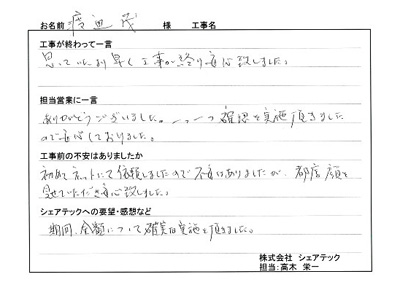 お名前 渡辺 茂 様 工事名
工事が終わって一言
思っていたより早く工事が終り安心致しました。
担当営業に一言
ありがとうございました。一つ一つ確認を実施頂きました
ので安心しておりました。
工事前の不安はありましたか
初めてネットにて依頼しましたので不安はありましたが、都度顔を
会せていただき安心致しました。
シェアテックへの要望・感想など
期間、金額について確実な実施を頂きました。
株式会社 シェアテック
担当:高木 栄一